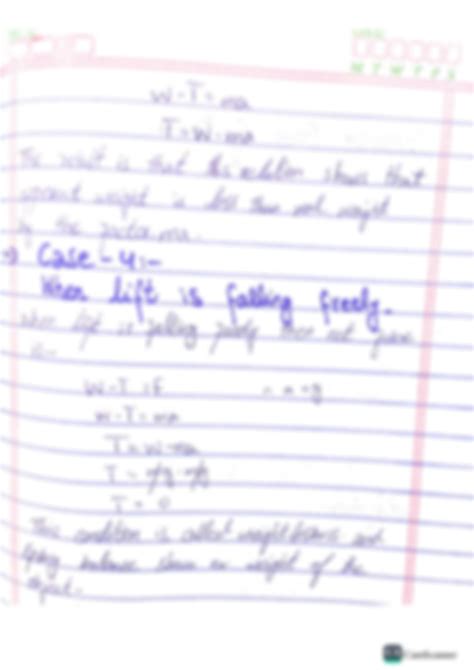 M T W T F S
W - T = ma
T = W - ma
is that this relation shows that
weight is less than real weight
by the factor ma.
=> Case - 4:-
When lift is falling freely.
When lift is falling freely then net force
is
W - T = F
W - T = ma
T = W - ma
T = mg - mg
T = 0
This condition is called weightlessness and
spring balance shown weight of the
object.
CamScanner